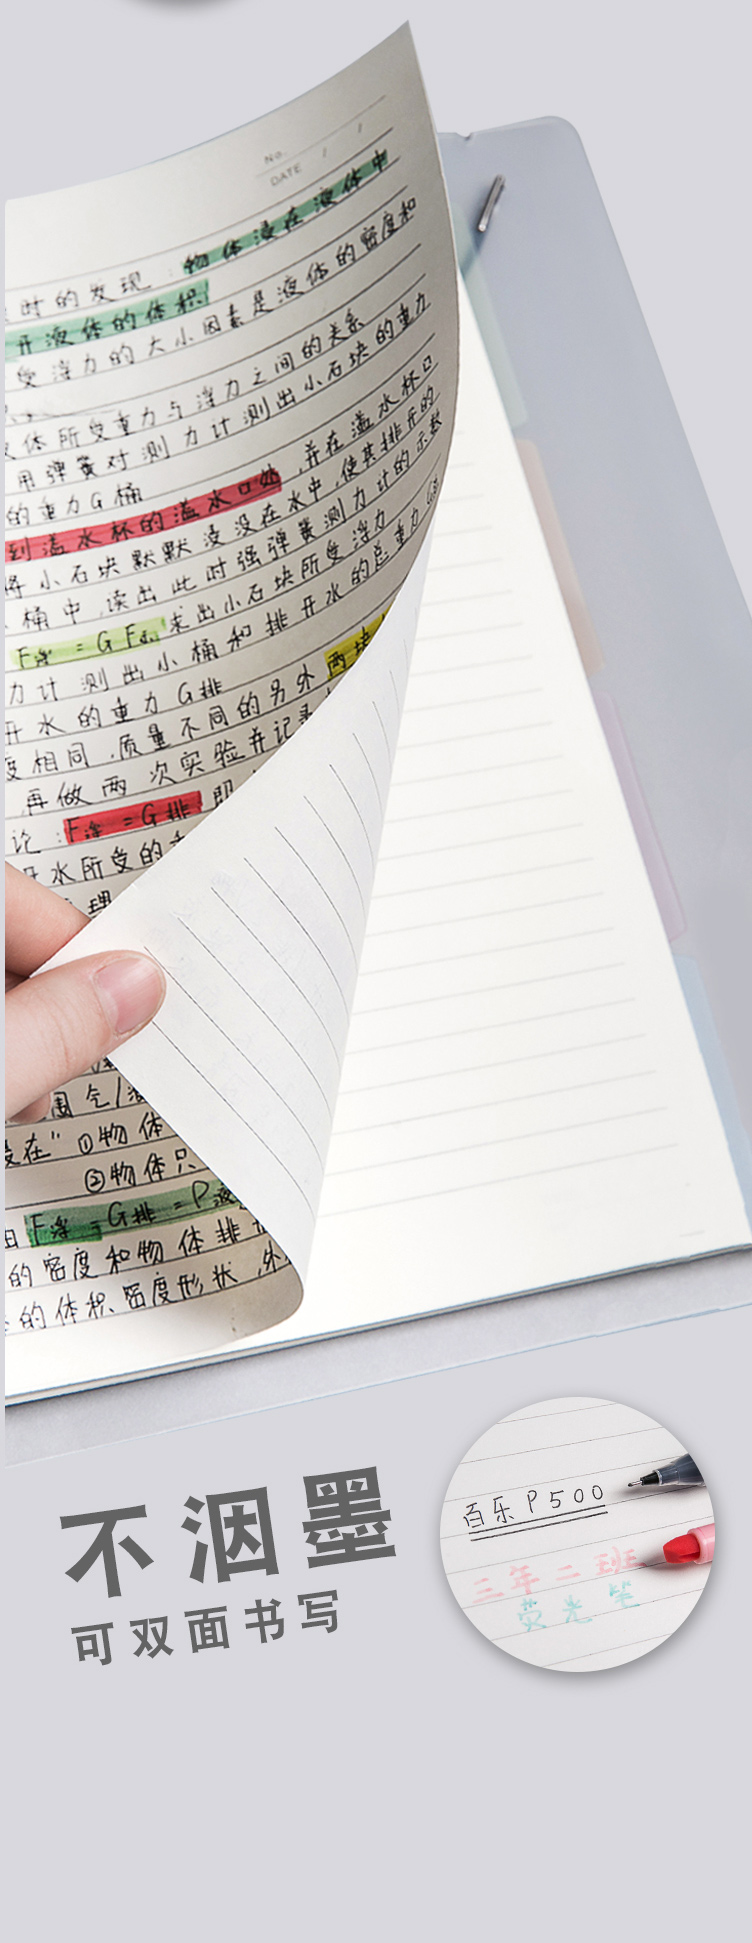 No.
DATE / /
物体浸在液体中
时的发现:
开液体的体积
受浮力的大小因素是液体的密度和
体所受重力与浮力之间的关系
用弹簧对测力计测出小石块的重力
的重力G桶
到溢水杯的溢水口处,并在溢水杯口
将小石块默默浸没在水中,使其排开的
桶中,读出此时强弹簧测力计的示数
F浮=G F 求出小石块所受浮力
力计测出小桶和排开水的总重力
开水的重力G排
度相同,质量不同的另外两块
再做两次实验并记录
论:F浮=G排 即
开水所受的
理
围气
浸在" ①物体
②物体只
由F浮=G排=ρ液
的密度和物体排
的体积、密度形状,外
不洇墨
可双面书写
百乐P500
三年二班
荧光笔